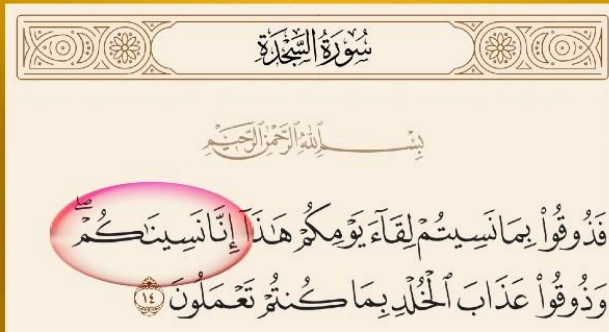 سُورَةُ السَّجۡدَةِ
بِسۡمِ ٱللَّهِ ٱلرَّحۡمَٰنِ ٱلرَّحِيمِ
فَذُوقُواْ بِمَا نَسِيتُمۡ لِقَآءَ يَوۡمِكُمۡ هَٰذَآ إِنَّا نَسِينَٰكُمۡۖ
وَذُوقُواْ عَذَابَ ٱلۡخُلۡدِ بِمَا كُنتُمۡ تَعۡمَلُونَ ١٤